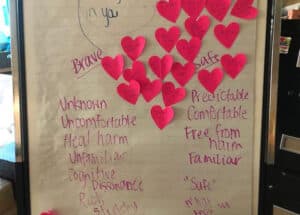 in you
Brave
Safe
Unknown
Uncomfortable
Heal harm
Unfamiliar
Cognitive
Dissonance
Predictable
Comfortable
Free from
harm
Familiar
"Safe"